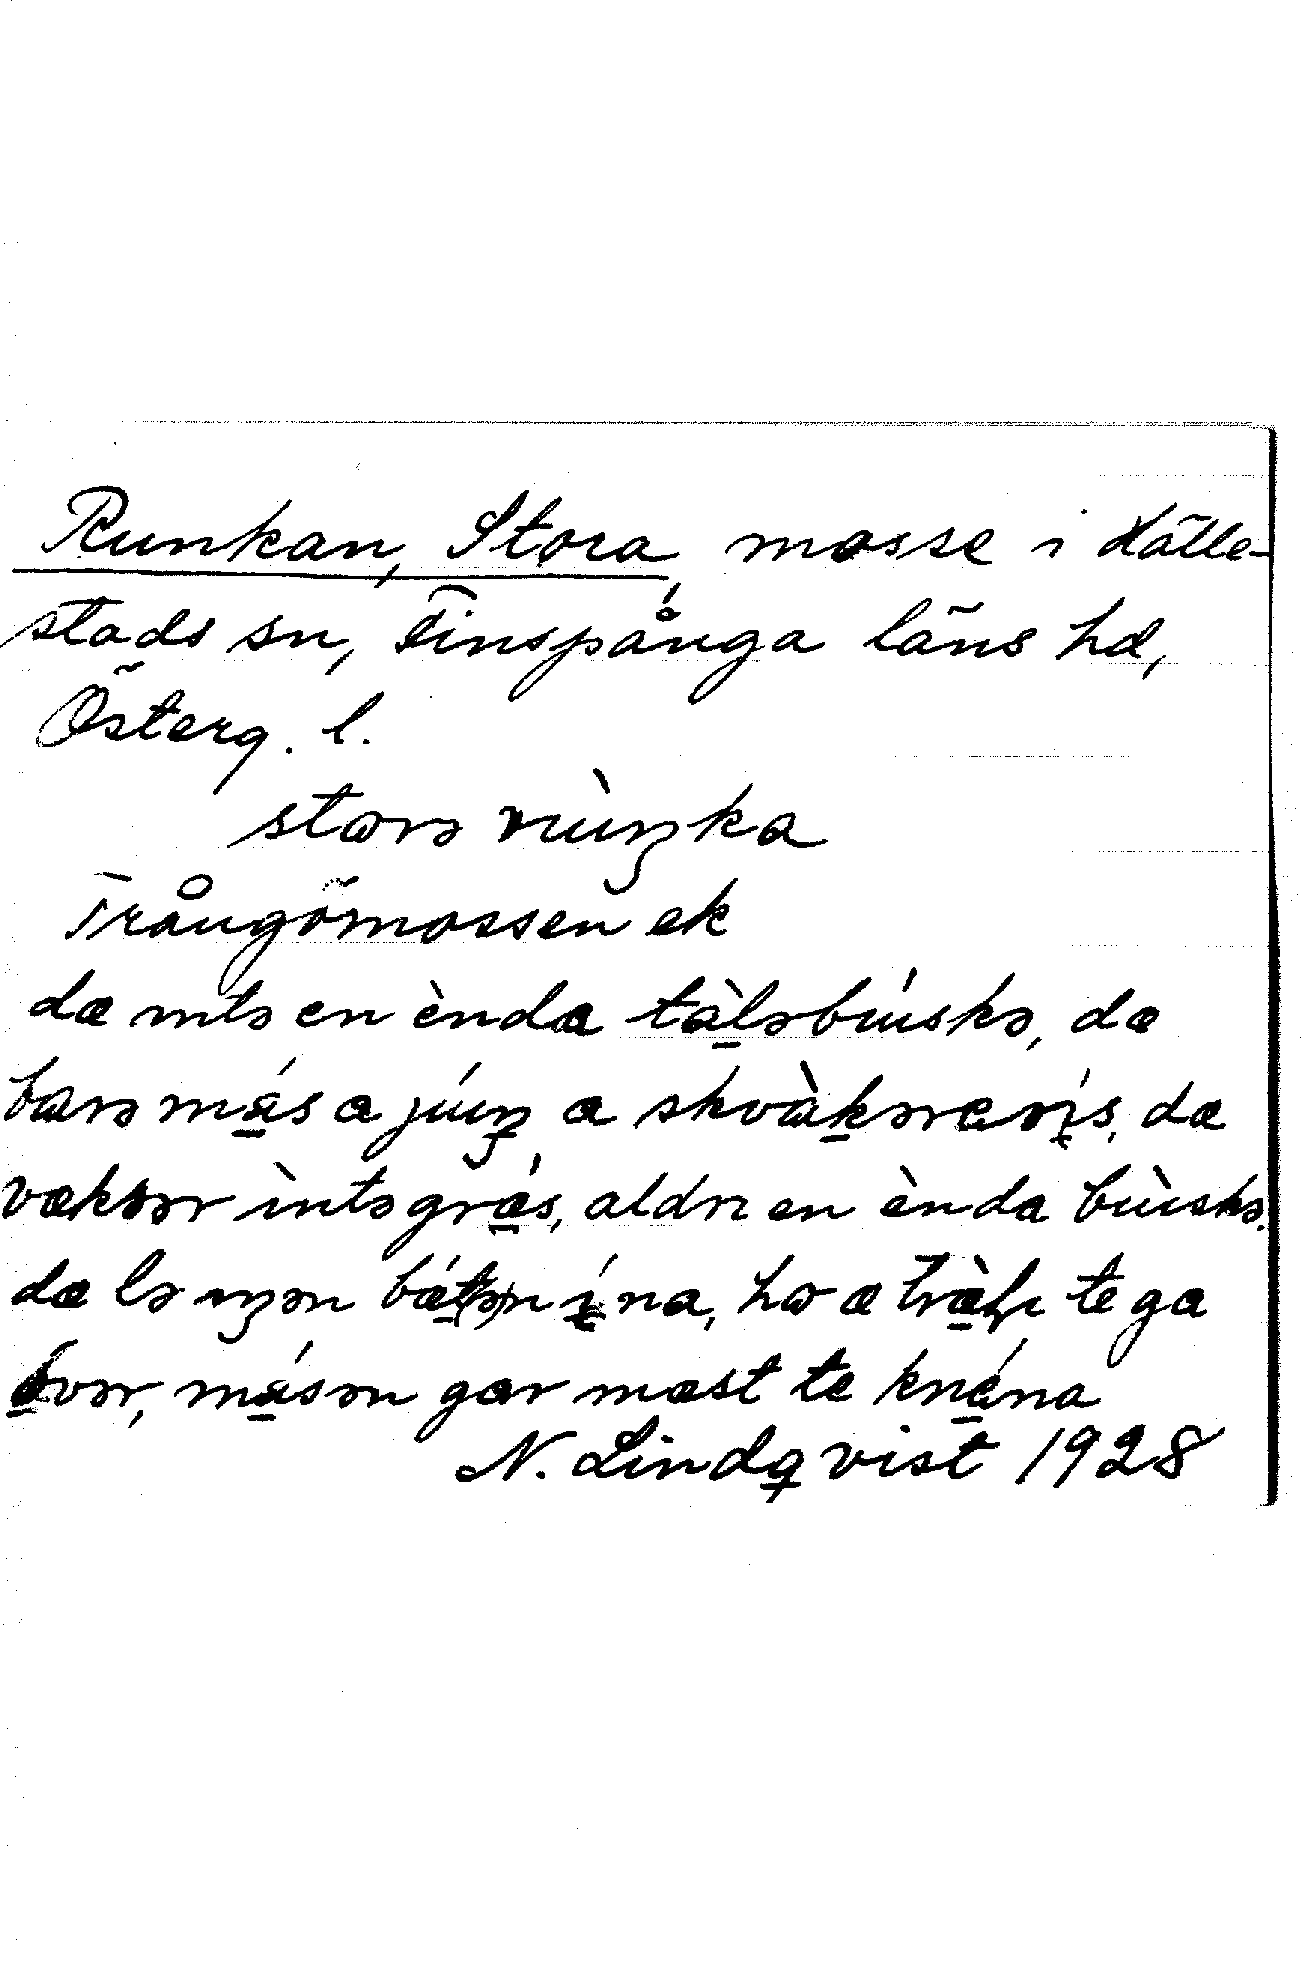 Runkan, Stora, mosse i Hälle-
stads sn, Finspånga läns hd,
Österg. l.
storə rùŋka
Trångömossen ek
dæ intə en ènda tàləbùskə, dæ
barə mǻs a júŋ a skvàkərərís, dæ
væksər ìntə grǽs, aldrı en ènda bùskə.
dæ lə ıŋən bótən ína, ho æ trǽlı te ga
ǿvər, mǻsən gar mæst te knéna
N. Lindqvist 1928